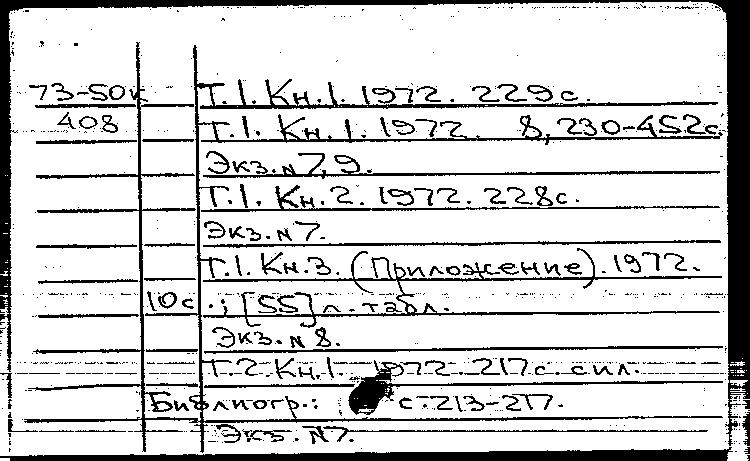 73-50к Т.1. Кн.1. 1972. 229с.
408 Т.1. Кн.1. 1972. 8,230-452с.
Экз.N7,9.
Т.1. Кн.2. 1972. 228с.
Экз.N7.
Т.1. Кн.3. (Приложение). 1972.
10с.; [55] л. табл.
Экз.N8.
Т.2. Кн.1. 1972. 217с. сил.
Библиогр.: с.213-217.
Экз. N7.